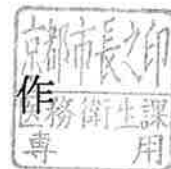 京都市長之印
作
医務衛生課
専用